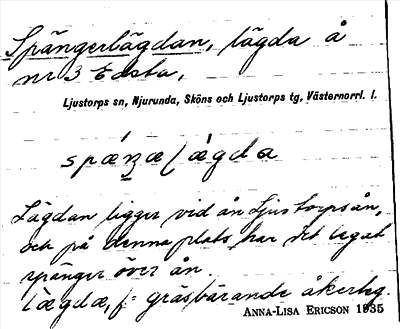 Spångerlägdan, lägda å
nr 3 Edsta,
Ljustorps sn, Njurunda, Sköns och Ljustorps tg, Västernorrl. l.
Lägdan ligger vid ån Ljustorpsån,
och på denna plats har det legat
spänger över ån.
gräsbärande åker
ANNA-LISA ERICSON 1935